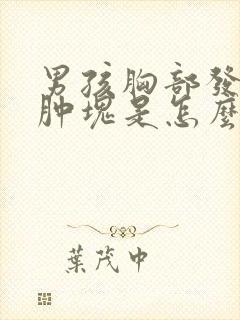 男孩胸部發
肿塊是怎麼
葉茂中